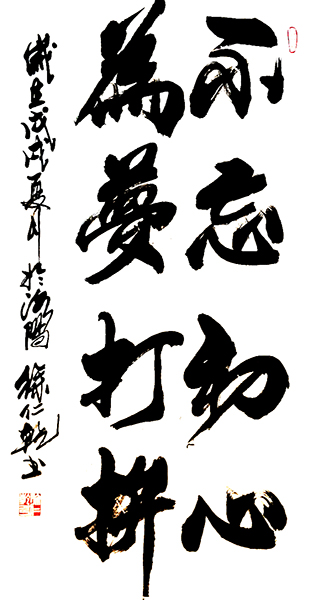 不忘初心
為夢打拼
歲在戊戌夏月於洛陽 徐仁乾書